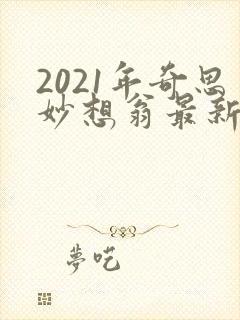 2021年奇思
妙想翁最新
夢吃